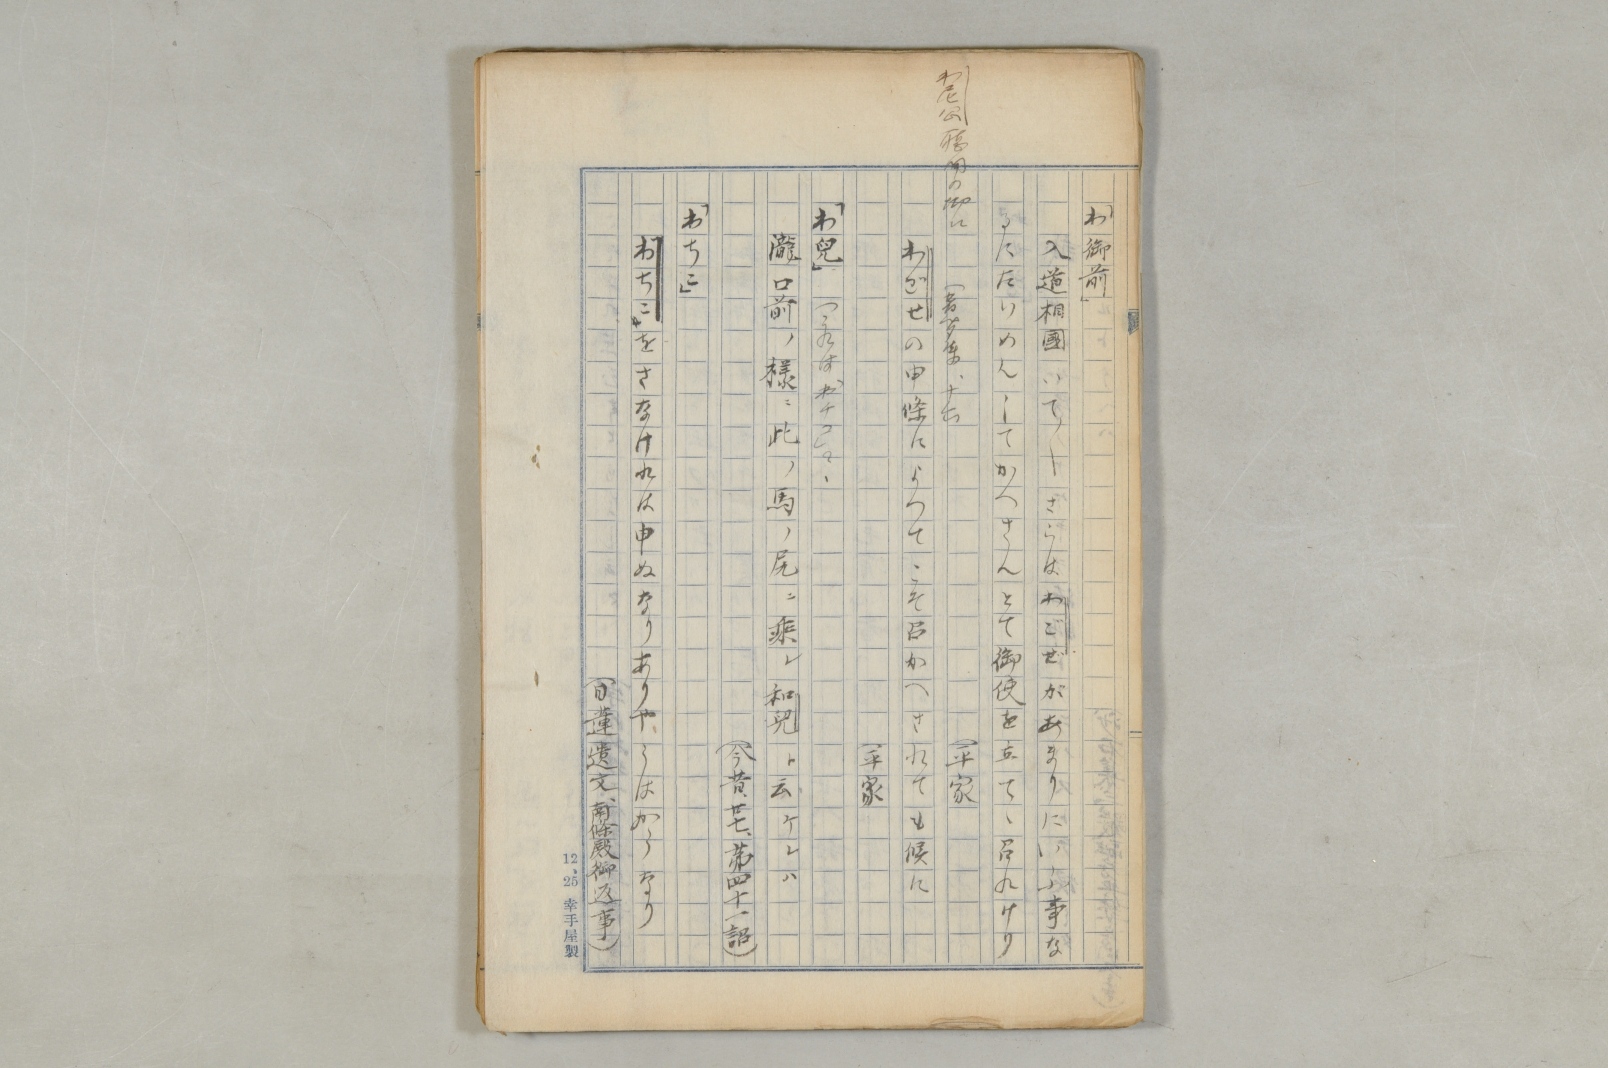 「わ御前」
入道相國いて〳〵さらはわごぜがあまりにいふ事な
るにたいめんしてかへさんとて御使を立てゝ召れけり
(平家
わごせの申條によつてこそ召かへされても候に
(平家
「わ兒」
瀧口前ノ様ニ此ノ馬ノ尻ニ乘レ和兒ト云ケレハ
(今昔、廿七、第四十一語)
「わちこ」
「わちこ」をさなけれは申ぬなりありやうはかうなり
(日蓮遺文、南條殿御返事)
12、25 幸手屋製